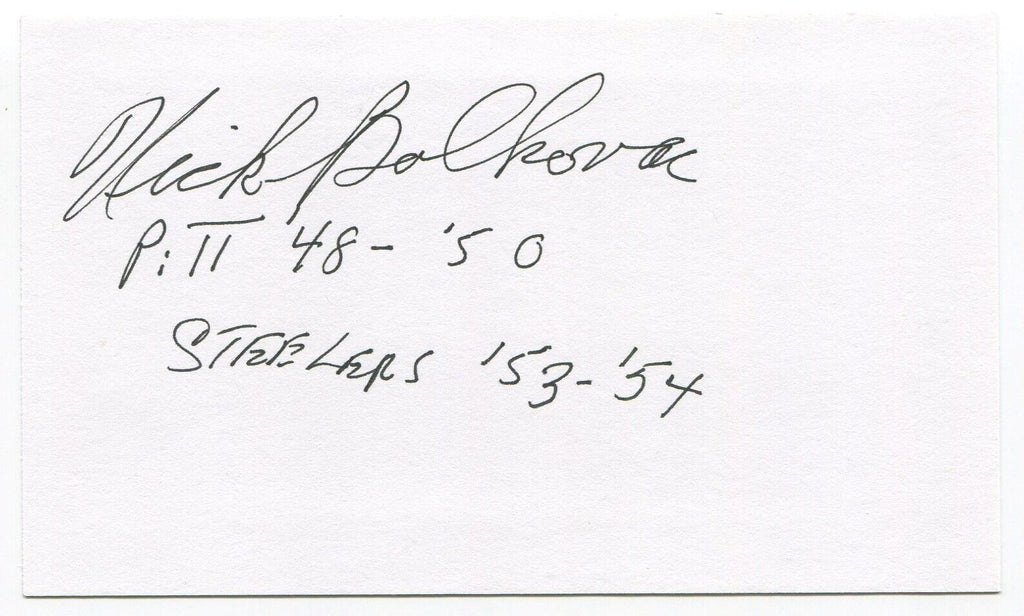 Nick Bolkovac
Pitt '48 - '50
STEELERS '53 - '54